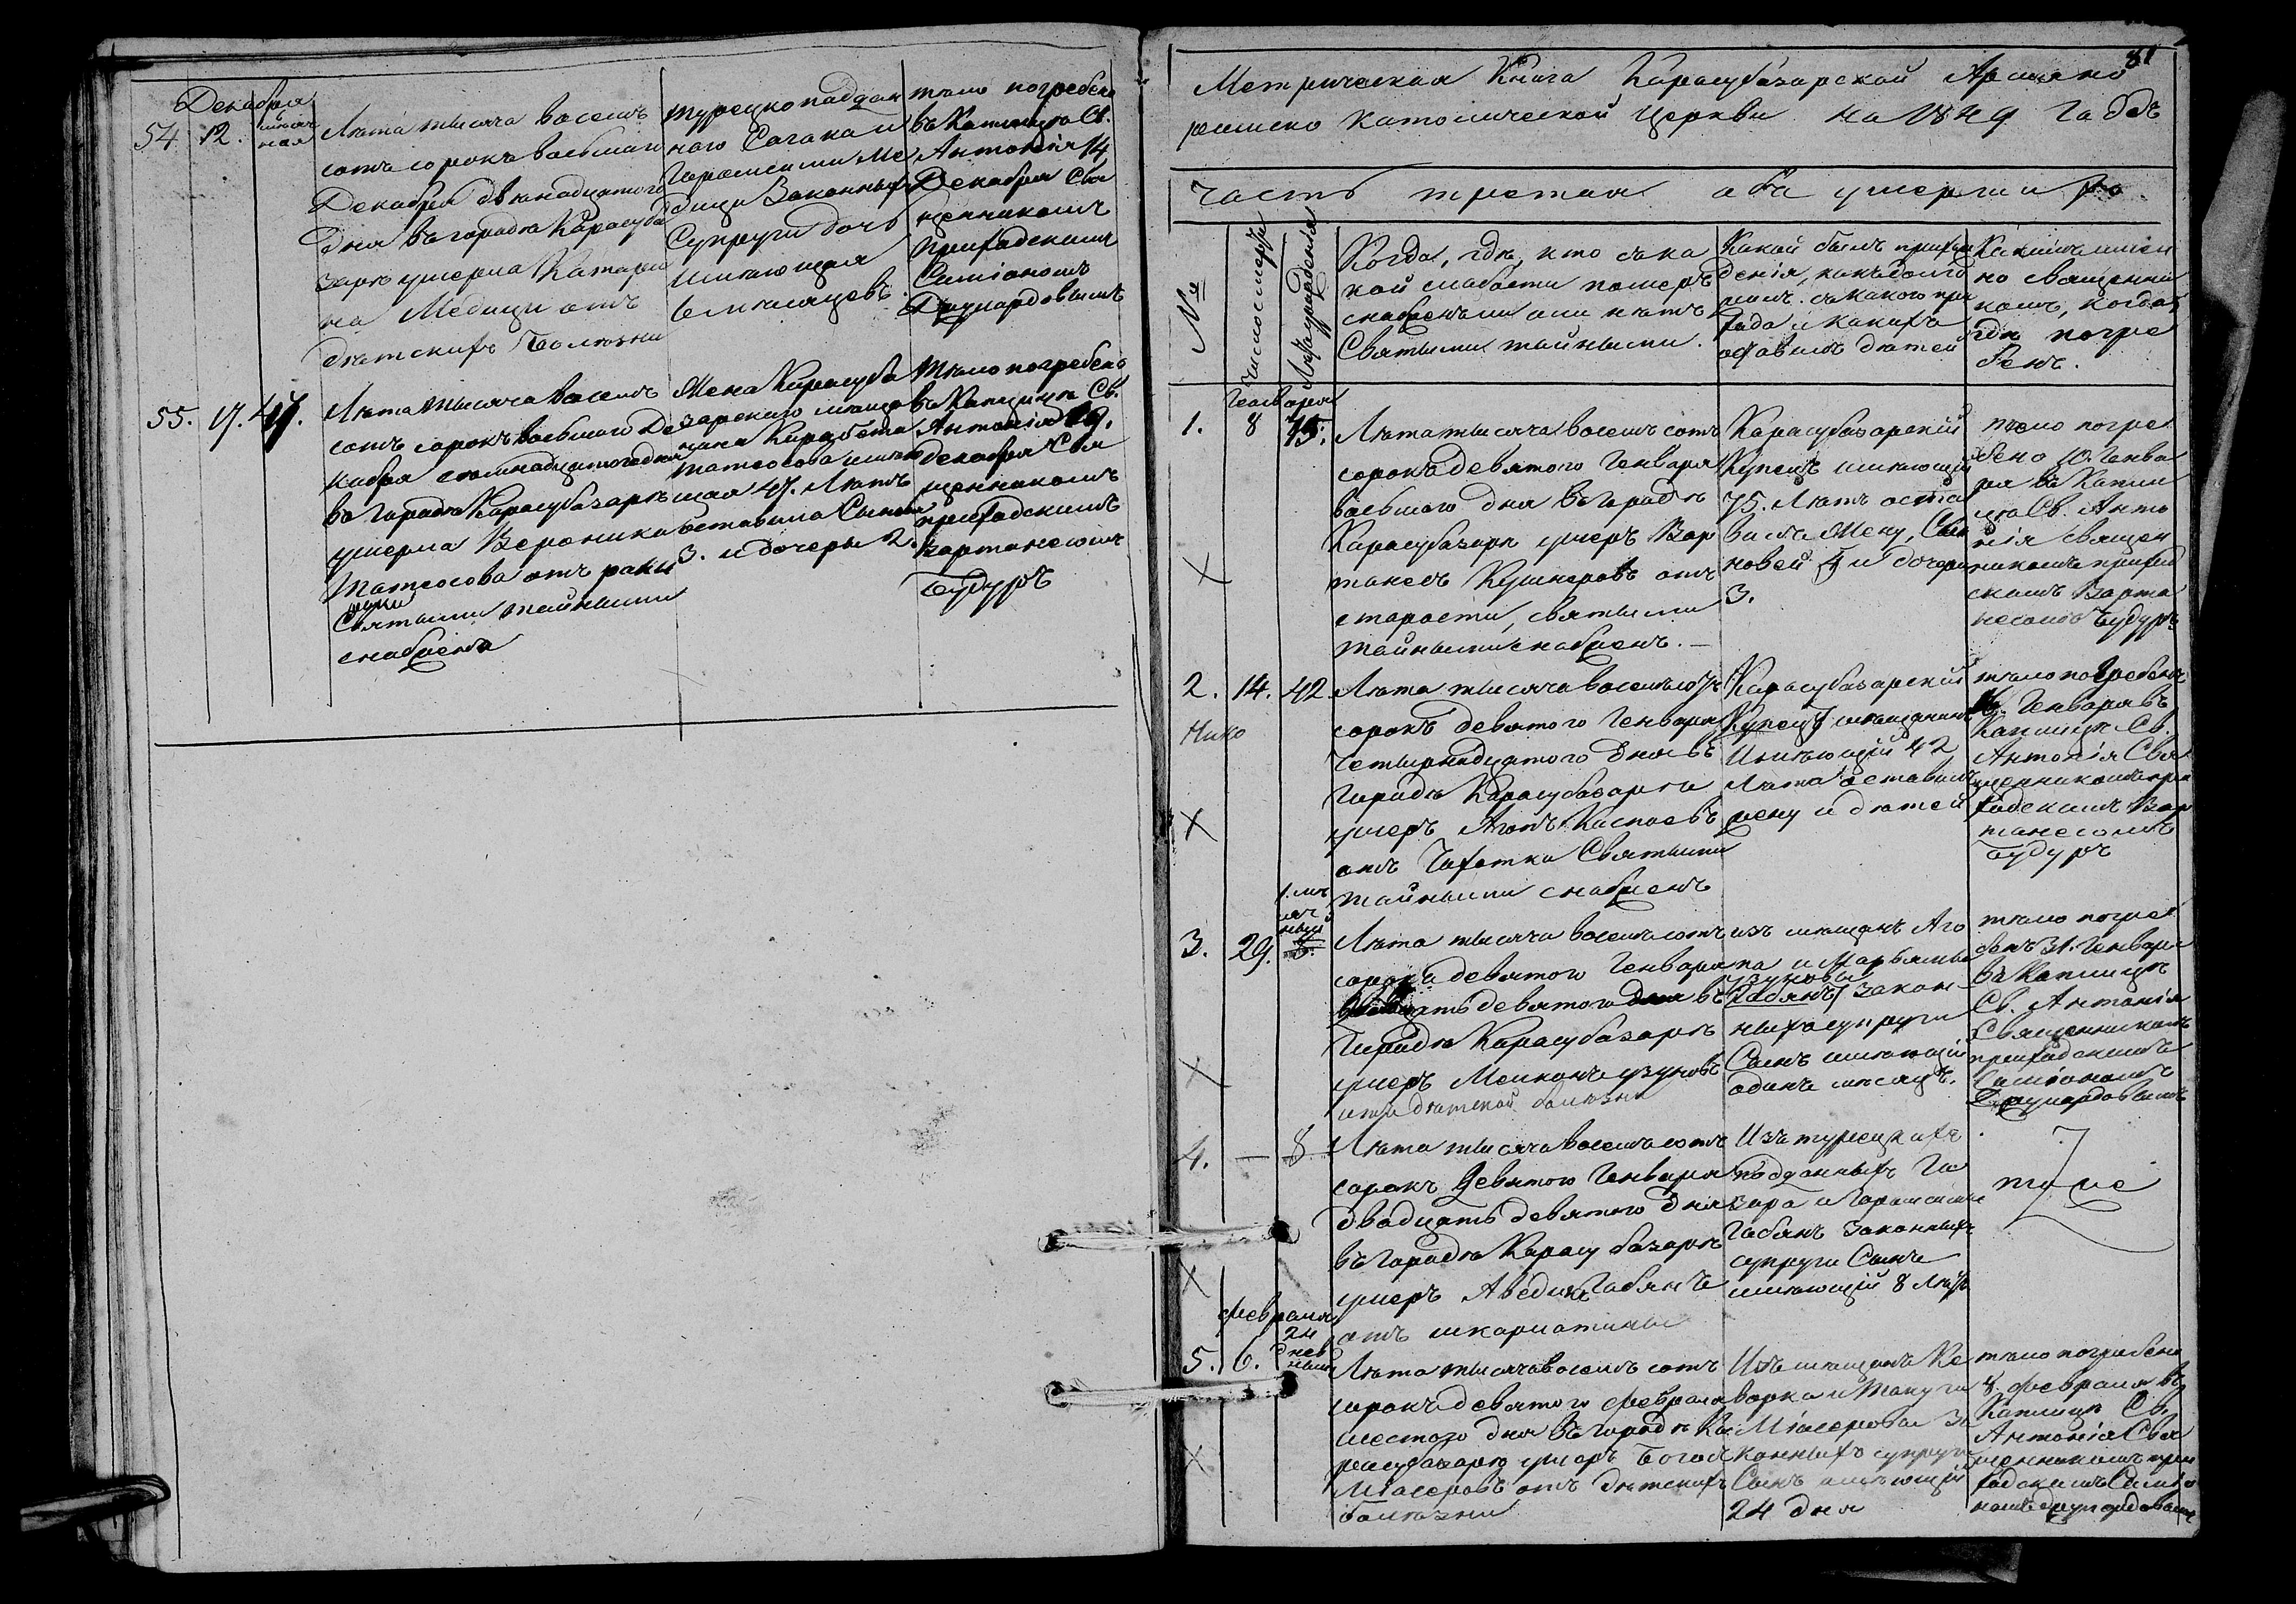 Декабря
54 12.
Лѣта тысяча восемь
сотъ сорокъ восьмаго
Декабря двѣнадцатого
дня въ городѣ Карасуба
зарѣ умерла Катари
на Медици отъ
дѣтскихъ болѣзни
турецкоподдан
ного Сагака и
Горомсими Ме
дици Законныхъ
Супруги дочь
имѣющая
6 мѣсяцевъ.
тѣло погребено
въ Каплицѣ Св.
Антонія 14
Декабря Свя
щенникомъ
приходскимъ
Симіономъ
55. 17. 47.
Лѣта тысяча восемь
сотъ сорокъ восьмаго Де
кабря семнадцатого дня
въ городѣ Карасубазарѣ
умерла Вероника
Татеосова отъ раны
Святыми тайными
снабжена
Жена Карасуба
зарского мѣща
нина Карабета
Татеосова имѣю
щая 47. Лѣтъ
оставила Сынов
3. и дочеры 2.
Тѣло погребено
въ Каплицѣ Св.
Антонія 19.
декабря Свя
щенникомъ
приходскимъ
Вартанесомъ
Будуръ
81
Метрическая Книга Карасубазарской Армяно
римско католической Церкви на 1849 годъ
часть третая оба умершихъ
№
Число смерти
Лѣта урожденія
Когда, гдѣ, кто съ ка
кой слабости померъ
снабженъ или нѣтъ
Святыми тайными.
Какой былъ прихож
денія, какъ долго
жилъ. съ какого при
хода и какихъ
оставилъ дѣтей
Какимъ имен
но священни
комъ, когда,
гдѣ погре
бенъ.
Генваря
1. 8 75.
Лѣта тысяча восемь сотъ
сорокъ девятого Генваря
восьмого дня въ городѣ
Карасубазарѣ умеръ Вар
танесъ Кушнеровъ отъ
старости, святыми
тайными снабженъ.—
Карасубазарскій
Купецъ имѣющій
75. Лѣтъ оста
вилъ Жену, Сы
новей 4 и дочери
3.
тѣло погре
бено 10. Генва
ря въ Капли
цѣ Св. Анто
нія священ
никомъ приход
скимъ Варта
несомъ Будуръ
2. 14. 42
Лѣта тысяча восемьсотъ
сорокъ девятого Генваря
Четырнадцатого дня въ
городѣ Карасубазарѣ
умеръ
отъ Чахотки Святыми
тайными снабженъ
Карасубазарскій
Купецъ мѣщанинъ
Имѣющій 42
Лѣта оставилъ
жену и дѣтей
тѣло погребенъ
16. Генваря въ
Каплицѣ Св.
Антонія Свя
щенникомъ при
ходскимъ Вар
танесомъ
Будуръ
3. 29.
Лѣта тысяча восемьсотъ
сорокъ девятого Генваря
двадцать девятого дня въ
городѣ Карасубазарѣ
умеръ Мелконъ Узуновъ
отъ дѣтской болѣзни
изъ мѣщанъ Аго
па и Марьямы
Узуновы
закон
ныхъ супруги
Сынъ имѣющій
одинъ мѣсяцъ.
тѣло погре
бенъ 31. Генваря
въ Каплицѣ
Св. Антонія
Священникомъ
приходскимъ
Симіономъ
4. — 8
Лѣта тысяча восемь сотъ
сорокъ девятого Генваря
двадцать девятого дня
въ городѣ Карасубазарѣ
умеръ Аведикъ Габянъ
отъ шкарлатины
Изъ турецкихъ
подданныхъ Га
зара и Горомсиме
Габянъ Законныхъ
супруги Сынъ
имѣющій 8 Лѣтъ
тоже
Февраля
5. 6. 24 днев
ный
Лѣта тысяча восемь сотъ
сорокъ девятого Февраля
шестого дня въ городѣ Ка
расубазарѣ умеръ Богос
Міасеровъ отъ дѣтскихъ
болѣзни
Изъ мѣщанъ Ке
ворка и Такуги
Міасеровы за
конныхъ супруги
Сынъ имѣющій
24 дня
тѣло погребено
8 Февраля въ
Каплицѣ Св.
Антонія Свя
щенникомъ при
ходскимъ Симіо